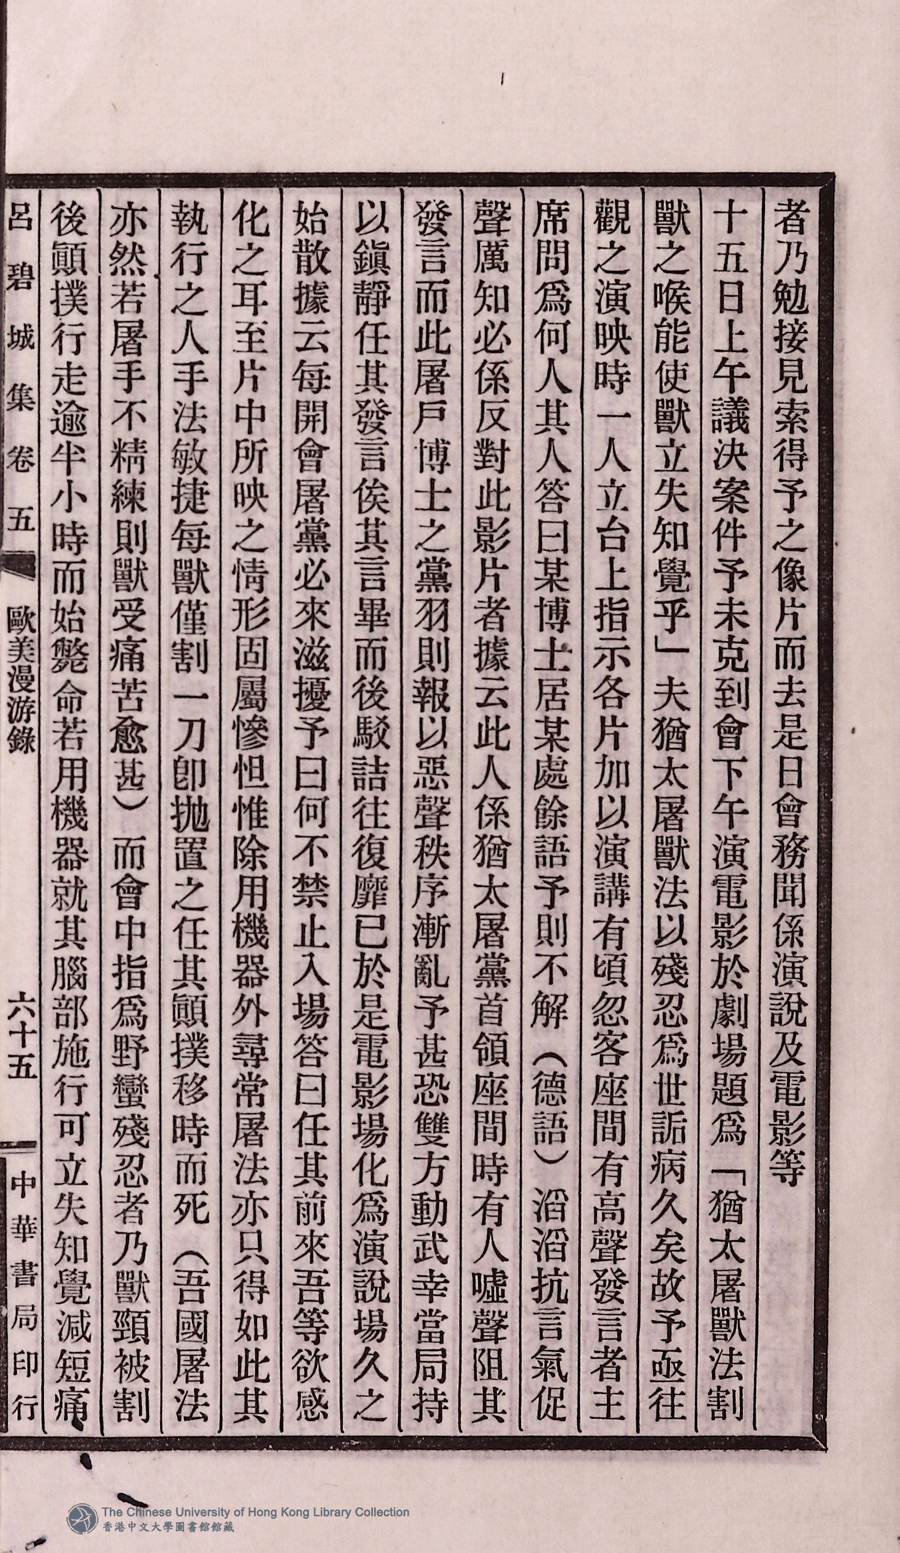 者乃勉接見索得予之像片而去是日會務聞係演說及電影等
十五日上午議決案件予未克到會下午演電影於劇場題爲「猶太屠獸法割
獸之喉能使獸立失知覺乎」夫猶太屠獸法以殘忍爲世詬病久矣故予亟往
觀之演映時一人立台上指示各片加以演講有頃忽客座間有高聲發言者主
席問爲何人其人答曰某博士居某處餘語予則不解(德語)滔滔抗言氣促
聲厲知必係反對此影片者據云此人係猶太屠黨首領座間時有人噓聲阻其
發言而此屠戶博士之黨羽則報以惡聲秩序漸亂予甚恐雙方動武幸當局持
以鎭靜任其發言俟其言畢而後駁詰往復靡已於是電影場化爲演說場久之
始散據云每開會屠黨必來滋擾予曰何不禁止入場答曰任其前來吾等欲感
化之耳至片中所映之情形固屬慘怛惟除用機器外尋常屠法亦只得如此其
執行之人手法敏捷每獸僅割一刀卽拋置之任其顚撲移時而死(吾國屠法
亦然若屠手不精練則獸受痛苦愈甚)而會中指爲野蠻殘忍者乃獸頸被割
後顚撲行走逾半小時而始斃命若用機器就其腦部施行可立失知覺減短痛
呂碧城集卷五 歐美漫游錄 六十五 中華書局印行
The Chinese University of Hong Kong Library Collection
香港中文大學圖書館館藏